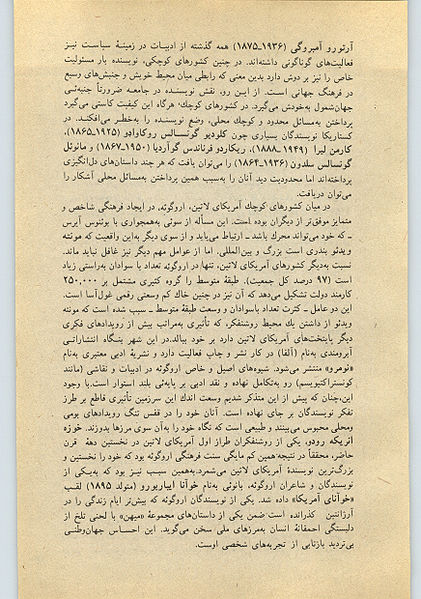 آرتورو آمبروگی (۱۹۳۶ـ۱۸۷۵) همه گذشته از ادبیات در زمینهٔ سیاست نیز
فعالیت‌های گوناگونی داشته‌اند. در چنین کشورهای کوچکی، نویسنده بار مسئولیت
خاص را نیز بر دوش دارد بدین معنی که رابطی میان محیط خویش و جنبش‌های وسیع
در فرهنگ جهانی است. از این رو، نقش نویسنده در جامعه ضرورتاً جنبه‌ئی
جهان‌شمول به‌خودش می‌گیرد. در کشورهای کوچك، هرگاه این کیفیت کاستی می‌گیرد
پرداختن به‌مسائل محدود و کوچك محلی، وضع نویسنده را به‌خطر می‌افکند. در
کستاریکا نویسندگان بسیاری چون کلودیو گونسالس روکاوادو (۱۹۲۵ـ۱۸۶۵)،
کارمن لیرا (۱۹۴۹ ـ۱۸۸۸)، ریکاردو فرناندس گوآردیا (۱۹۵۰ـ۱۸۶۷) و مانوئل
گونسالس سلدون (۱۹۳۶ـ۱۸۶۴) را می‌توان یافت که هر چند داستان‌های دل‌انگیزی
پرداخته‌اند اما محدودیت دید آنان را به‌سبب همین پرداختن به‌مسائل محلی آشکارا
می‌توان دریافت.
در میان کشورهای کوچك آمریکای لاتین، اروگوئه. در ایجاد فرهنگی شاخص و
متمایز موفق‌تر از دیگران بوده است. این مسأله از سوئی به‌همجواری با بوئنوس آیرس
ـ که خود می‌تواند محرك باشد ـ ارتباط می‌یابد و از سوی دیگر به‌این واقعیت که مونته
ویدئو بندری است بزرگ و بین‌المللی. اما از عوامل مهم دیگر نیز غافل نباید ماند.
نسبت به‌دیگر کشورهای آمریکای لاتین، تنها در اروگوئه تعداد با سوادان به‌راستی زیاد
است (۹۷ درصد کل جمعیت). طبقهٔ متوسط را گروه کثیری مشتمل بر ۲۵۰,۰۰۰
کارمند دولت تشکیل می‌دهد که آن نیز در چنین خاك کم وسعتی رقمی غول‌آسا است.
این دو عامل ـ کثرت تعداد باسوادان و وسعت طبقهٔ متوسط ـ سبب شده است که مونته
ویدئو از داشتن یك محیط روشنفکر، که تأثیری به‌مراتب بیش از رویدادهای فکری
دیگر پایتخت‌های آمریکای لاتین دارد بر خود ببالد.در این شهر بنگاه انتشاراتی
آبرومندی به‌نام (آلفا) در کار نشر و چاپ فعالیت دارد و نشریهٔ ادبی معتبری به‌نام
«نومرو» منتشر می‌شود. شیوه‌های اصیل و خاص اروگوئه در ادبیات و نقاشی (مانند
کونستراکتیویسم) رو به‌تکامل نهاده و نقد ادبی بر پایه‌ئی بلند استوار است.با وجود
این،چنان که پیش از این متذکر شدیم وسعت اندك این سرزمین تأثیری قاطع بر طرز
تفکر نویسندگان بر جای نهاده است. آنان خود را در قفس تنگ رویدادهای بومی
ومحلی محبوس می‌بینند و طبیعی است که نگاه خود را به‌آن سوی مرزها بدوزند. خوزه
انریکه رودو، یکی از روشنفکران طراز اول آمریکای لاتین در نخستین دههٔ قرن
حاضر، محققاً در نتیجه‌ٔ همین کم مایگی سنت فرهنگی اروگوئه بود که خود را نخستین و
بزرگ‌ترین نویسندهٔ آمریکای لاتین می‌شمرد.به‌همین سبب نیز بود که به‌یکی از
نویسندگان و شاعران اروگوئه، بانوئی به‌نام خوآنا ایبارپورو (متولد ۱۸۹۵) لقب
«خوآنای آمریکا» داده شد. یکی از نویسندگان اروگوئه که بیش‌تر ایام زندگی را در
آرژانتین گذرانده است ضمن یکی از داستان‌های مجموعهٔ «میهن» با لحنی تلخ از
دلبستگی احمقانهٔ انسان به‌مرزهای ملی سخن می‌گوید. این احساس جهان‌وطنی
بی‌تردید بازتابی از تجربه‌های شخصی اوست.